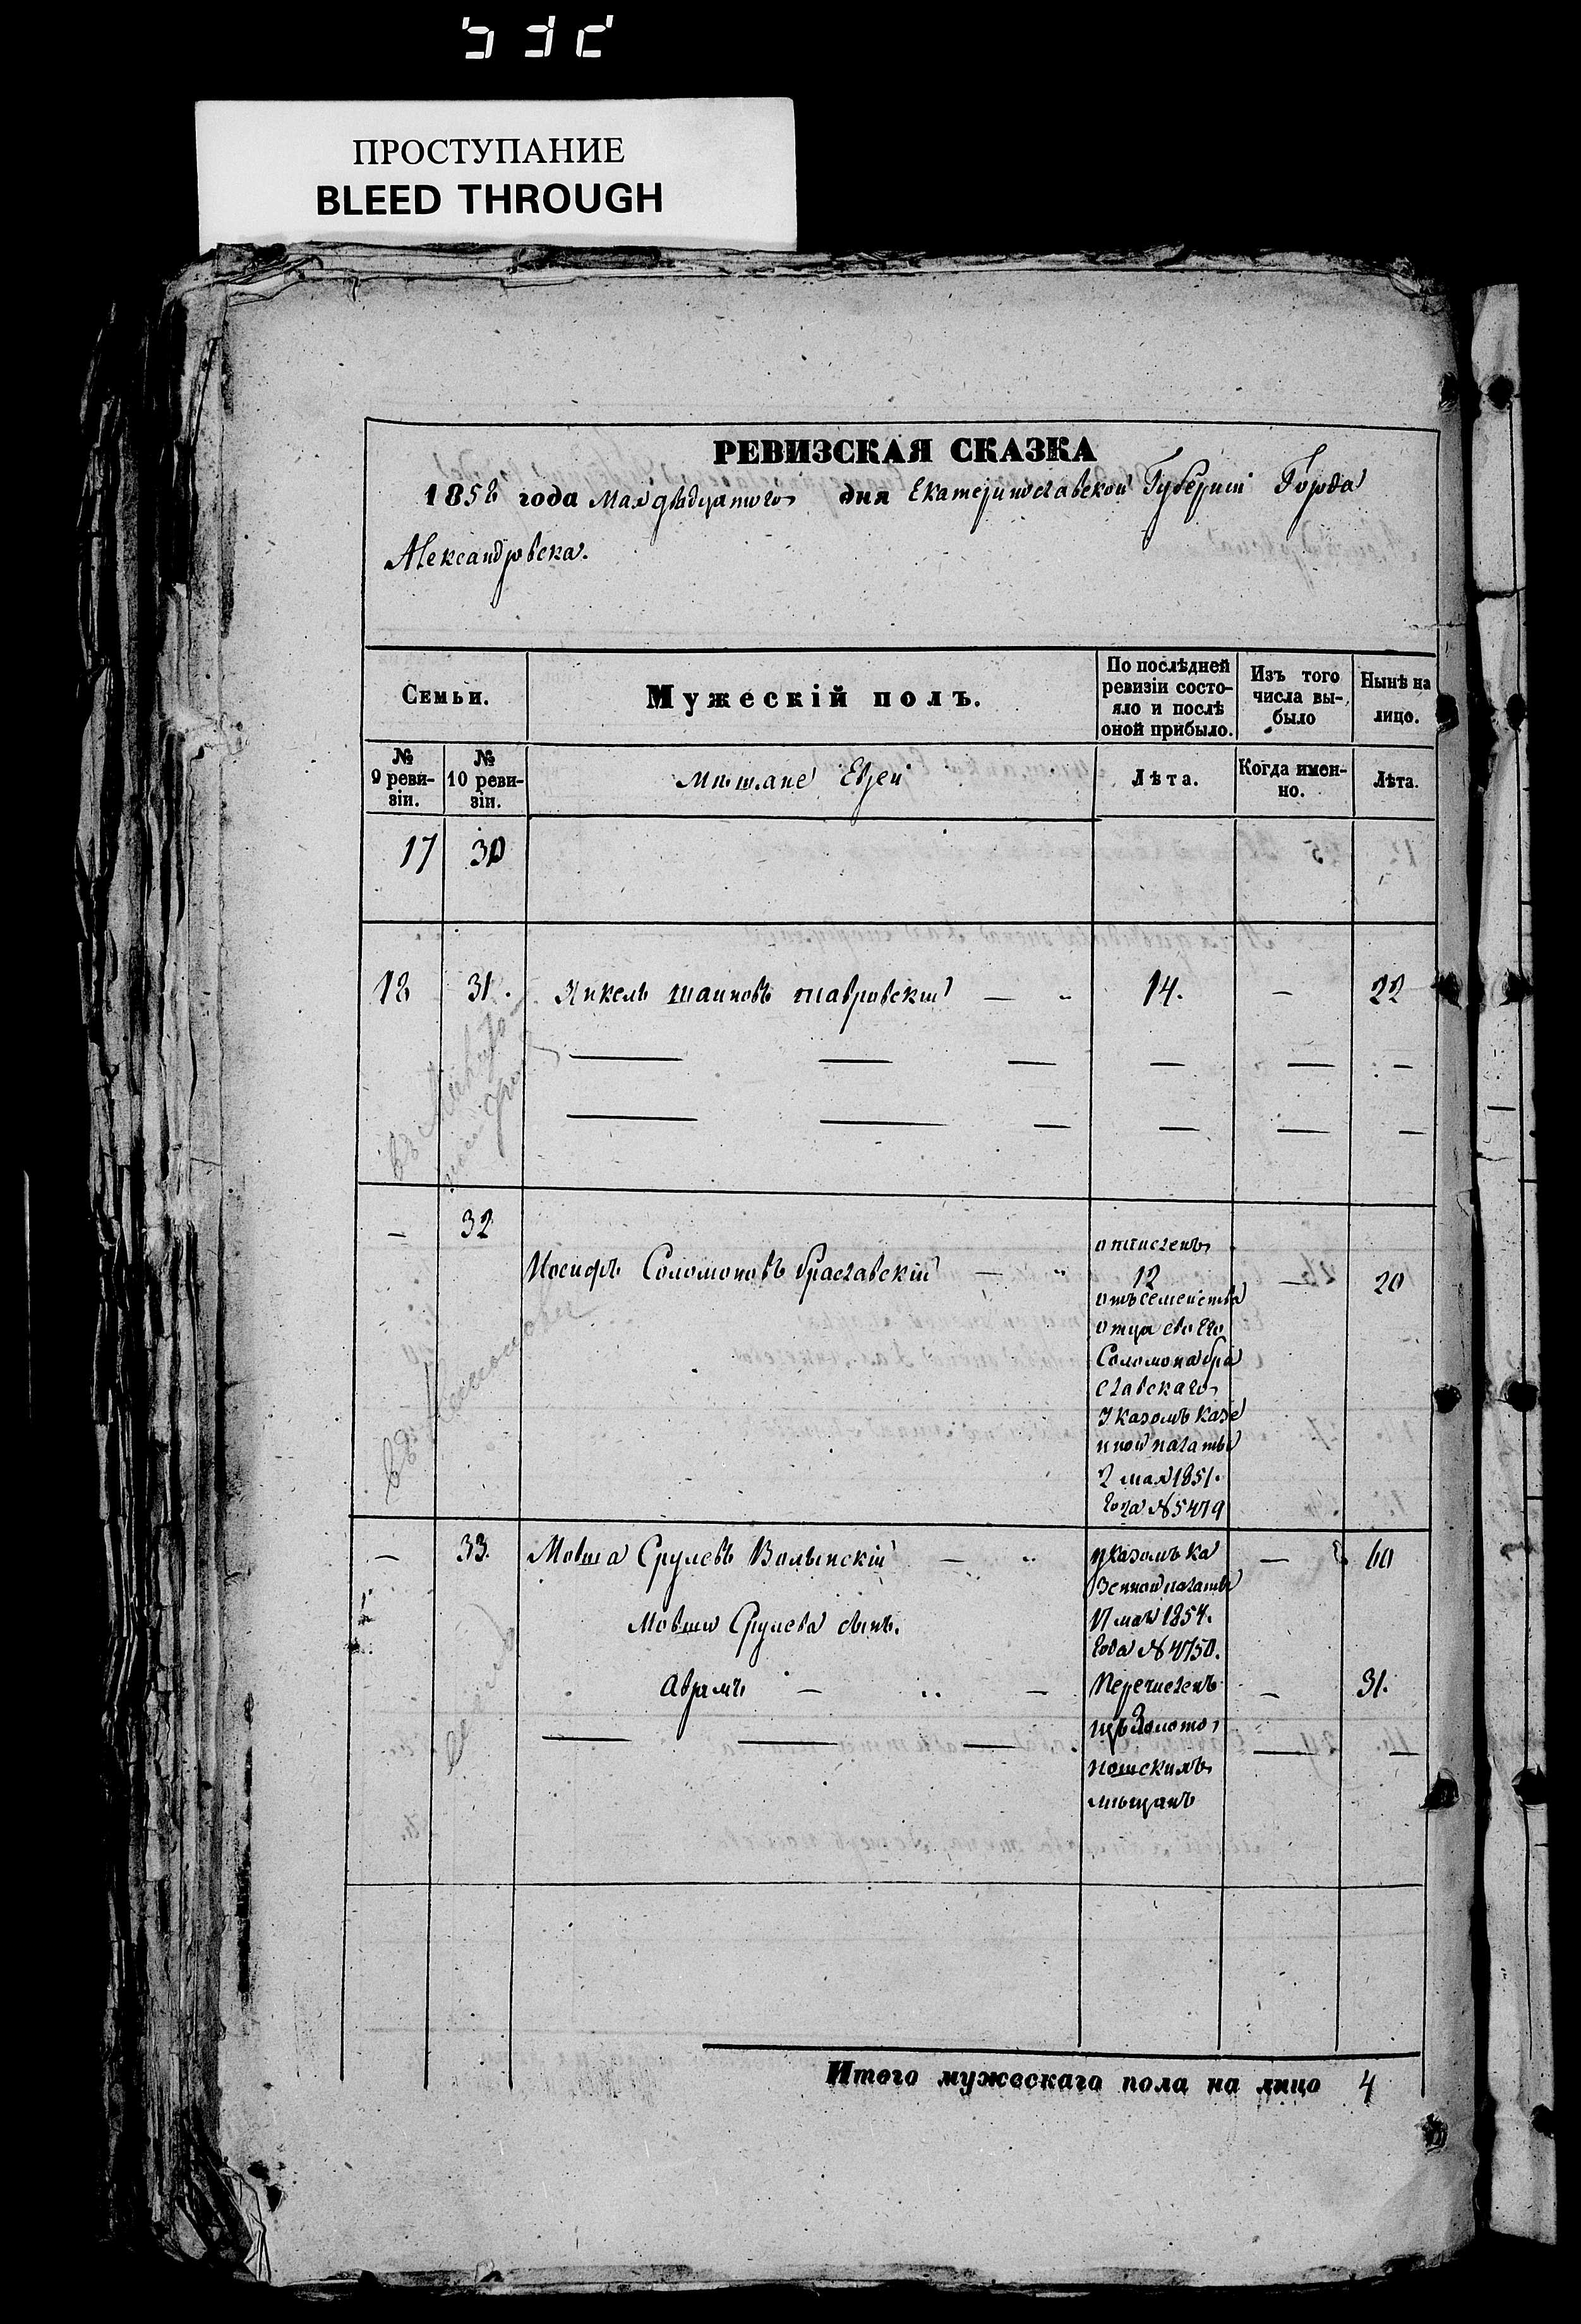 ПРОСТУПАНИЕ
BLEED THROUGH
РЕВИЗСКАЯ СКАЗКА
1858 года Мая двадцатого дня Екатеринославской Губернии Города
Александровска.
Семьи.
Мужескій полъ.
По послѣдней
ревизіи состо-
яло и послѣ
оной прибыло.
Изъ того
числа вы-
было
Нынѣ на
лицо.
№
9 реви-
зіи.
№
10 реви-
зіи.
Мѣщане Евреи
Лѣта.
Когда имен-
но.
Лѣта.
17 30
18 31. Янкель Шаиновъ Тавровскій — „ 14. — 22
— — — — — —
— — — — — —
— 32
Іосифъ Соломоновъ Браславскій — „ 12 — 20
отписленъ
отъ семейства
отца своего
Соломона Бра
славскаго
Указомъ Казе
нной палаты
2 мая 1851.
года № 5479
— 33. Мовша Срулевъ Волынскій — „ — 60
Указомъ Ка
зенной палаты
17 мая 1854.
года № 4750.
Перечисленъ
изъ Золото
ношскихъ
мѣщанъ
Мовши Срулева сынъ.
Аврамъ — „ — — 31.
— — — — —
Итого мужескаго пола на лицо 4